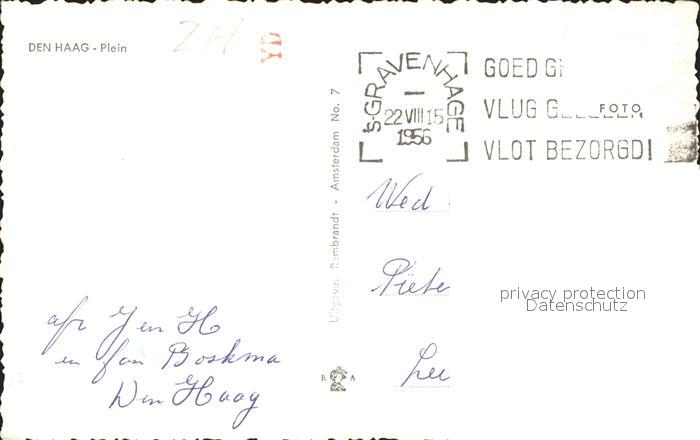 DEN HAAG - Plein
ZH
YD
's-GRAVENHAGE
22 VIII 15
1956
GOED G
VLUG G
FOTO
VLOT BEZORGD!
Uitgave: Rembrandt - Amsterdam No. 7
Wed
Piete
privacy protection
Datenschutz
afz
H
en fam Boskma
Den Haag
R A